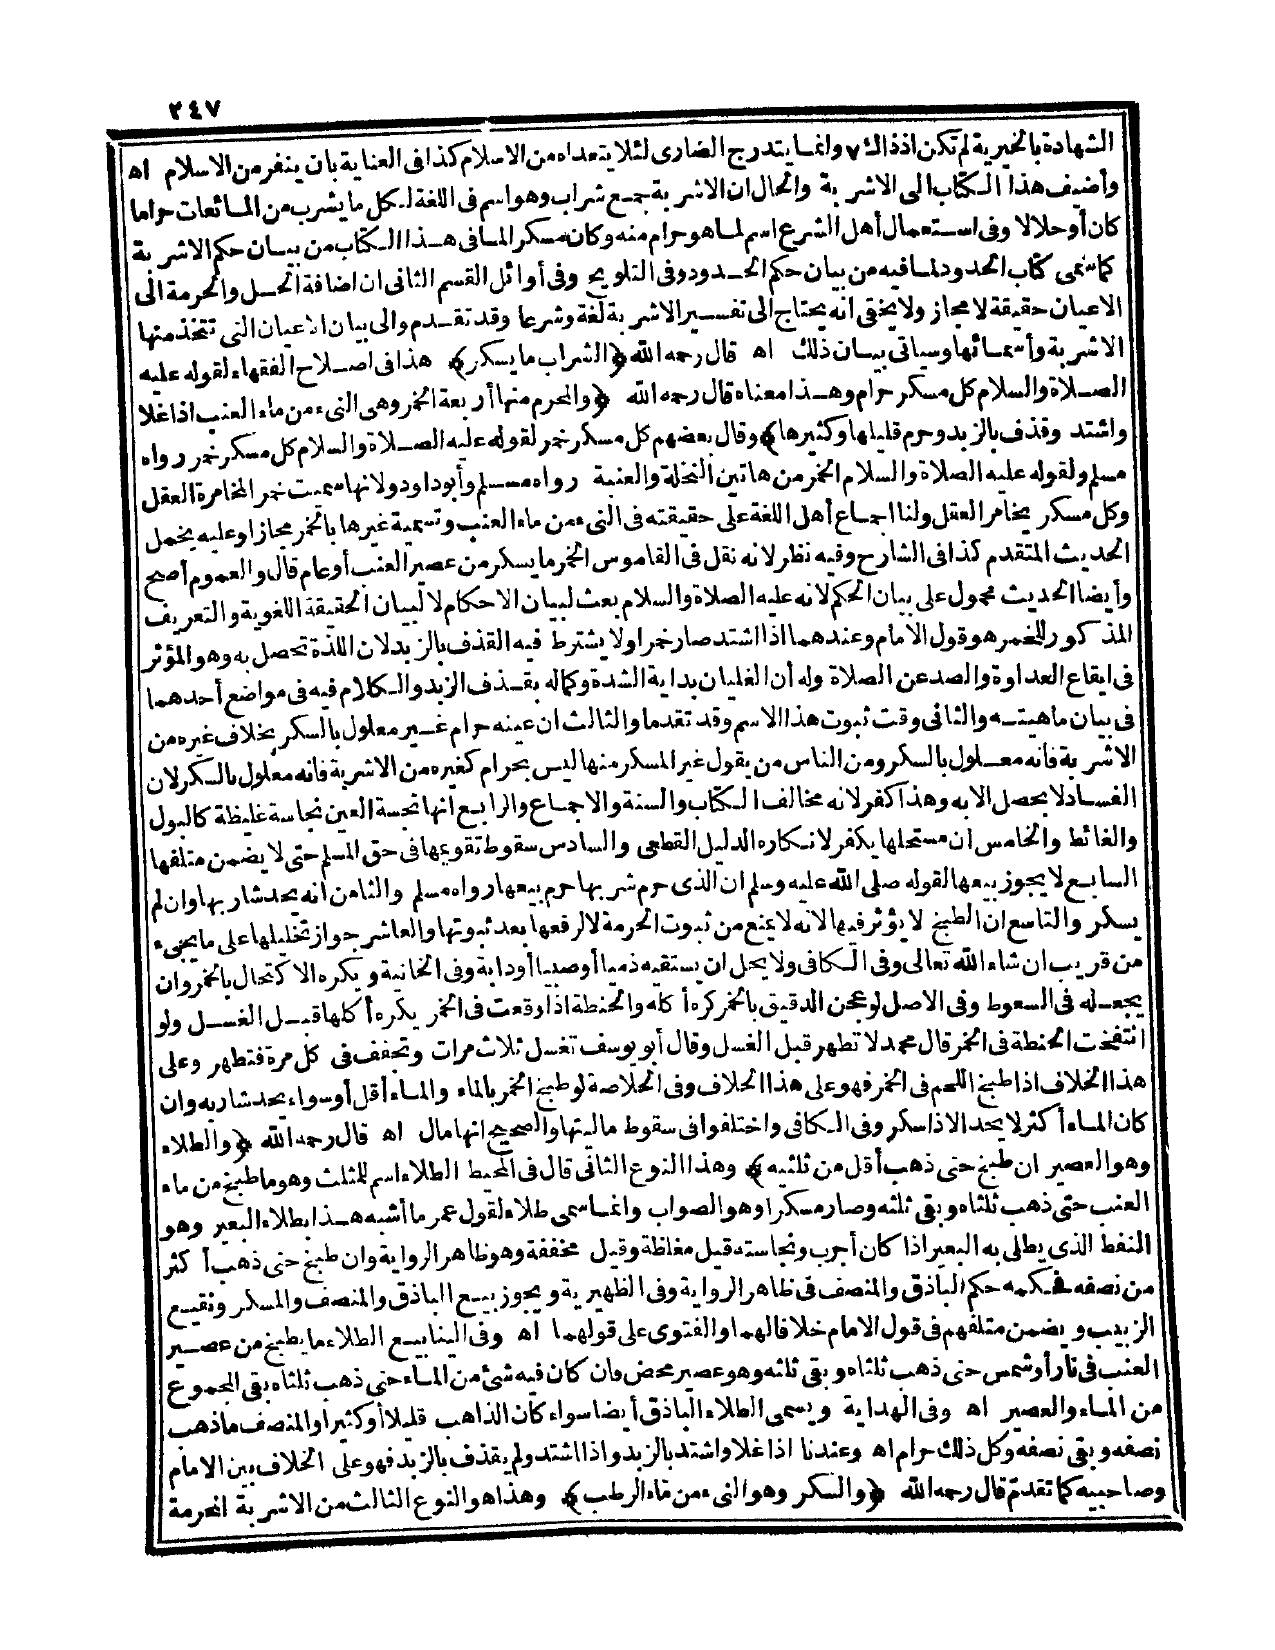 ٢٤٧
الشهادة بالخيرية لم تكن اذ ذاك ٧ وانما يتدرج الضارى لئلا يتعداه من الاسلام كذا فى العناية بان ينفر من الاسلام اه
وأضيف هذا الكتاب الى الاشربة والحال ان الاشربة جمع شراب وهو اسم فى اللغة لكل ما يشرب من المائعات حراما
كان أو حلالا وفى استعمال أهل الشرع اسم لما هو حرام منه وكان مسكر المافى هذا الكتاب من بيان حكم الاشربة
كما سمى كتاب الحدود لما فيه من بيان حكم الحدود وفى التلويح وفى أوائل القسم الثانى ان اضافة الحل والحرمة الى
الاعيان حقيقة لا مجاز ولا يخفى انه يحتاج الى تفسير الاشربة لغة وشرعا وقد تقدم والى بيان الاعيان التى تتخذ منها
الاشربة وأسمائها وسياتى بيان ذلك اه قال رحمه الله ﴿الشراب ما يسكر﴾ هذا فى اصلاح الفقهاء لقوله عليه
الصلاة والسلام كل مسكر حرام وهذا معناه قال رحمه الله ﴿والمحرم منها أربعة الخمر وهى النىء من ماء العنب اذا غلا
واشتد وقذف بالزبد وحرم قليلها وكثيرها﴾ وقال بعضهم كل مسكر خمر لقوله عليه الصلاة والسلام كل مسكر خمر رواه
مسلم ولقوله عليه الصلاة والسلام الخمر من هاتين النخلة والعنبة رواه مسلم وأبو داود ولانها سميت خمرا لمخامرة العقل
وكل مسكر يخامر العقل ولنا اجماع أهل اللغة على حقيقته فى النىء من ماء العنب وتسمية غيرها بالخمر مجازا وعليه يحمل
الحديث المتقدم كذا فى الشارح وفيه نظر لانه نقل فى القاموس الخمر ما يسكر من عصير العنب أو عام قال والعموم أصح
وأيضا الحديث محمول على بيان الحكم لانه عليه الصلاة والسلام بعث لبيان الاحكام لا لبيان الحقيقة اللغوية والتعريف
المذكور للخمر هو قول الامام وعندهما اذا اشتد صار خمرا ولا يشترط فيه القذف بالزبد لان اللذة تحصل به وهو المؤثر
فى ايقاع العداوة والصد عن الصلاة وله أن الغليان بداية الشدة وكماله بقذف الزبد والكلام فيه فى مواضع أحدهما
فى بيان ماهيته والثانى وقت ثبوت هذا الاسم وقد تقدما والثالث ان عينه حرام غير معلول بالسكر بخلاف غيره من
الاشربة فانه معلول بالسكر ومن الناس من يقول غير المسكر منها ليس بحرام كغيره من الاشربة فانه معلول بالسكر لان
الفساد لا يحصل الا به وهذا كفر لانه مخالف الكتاب والسنة والاجماع والرابع انها نجسة العين نجاسة غليظة كالبول
والغائط والخامس ان مستحلها يكفر لانكاره الدليل القطعى والسادس سقوط تقويمها فى حق المسلم حتى لا يضمن متلفها
السابع لا يجوز بيعها لقوله صلى الله عليه وسلم ان الذى حرم شربها حرم بيعها رواه مسلم والثامن انه يحد شاربها وان لم
يسكر والتاسع ان الطبخ لا يؤثر فيها لانه لا يمنع من ثبوت الحرمة لا لرفعها بعد ثبوتها والعاشر جواز تخليلها على ما يجىء
من قريب ان شاء الله تعالى وفى الكافى ولا يحل ان يسقيه ذميا أو صبيا أو دابة وفى الخانية ويكره الاكتحال بالخمر وان
يجعله فى السعوط وفى الاصل لو عجن الدقيق بالخمر كره أكله والحنطة اذا وقعت فى الخمر يكره أكلها قبل الغسل ولو
انتفخت الحنطة فى الخمر قال محمد لا تطهر قبل الغسل وقال أبو يوسف تغسل ثلاث مرات وتجفف فى كل مرة فتطهر وعلى
هذا الخلاف اذا طبخ اللحم فى الخمر فهو على هذا الخلاف وفى الخلاصة لو طبخ الخمر بالماء والماء أقل أو سواء يحد شاربه وان
كان الماء أكثر لا يحد الا اذا سكر وفى الكافى واختلفوا فى سقوط ماليتها والصحيح انها مال اه قال رحمه الله ﴿والطلاء
وهو العصير ان طبخ حتى ذهب أقل من ثلثيه﴾ وهذا النوع الثانى قال فى المحيط الطلاء اسم للمثلث وهو ما طبخ من ماء
العنب حتى ذهب ثلثاه وبقى ثلثه وصار مسكرا وهو الصواب وانما سمى طلاء لقول عمر ما أشبه هذا بطلاء البعير وهو
النفط الذى يطلى به البعير اذا كان أجرب ونجاسته قيل مغلظة وقيل مخففة وهو ظاهر الرواية وان طبخ حتى ذهب أكثر
من نصفه فحكمه حكم الباذق والمنصف فى ظاهر الرواية وفى الظهيرية ويجوز بيع الباذق والمنصف والمسكر ونقيع
الزبيب ويضمن متلفهم فى قول الامام خلافا لهما والفتوى على قولهما اه وفى الينابيع الطلاء ما يطبخ من عصير
العنب فى نار أو شمس حتى ذهب ثلثاه وبقى ثلثه وهو عصير محض فان كان فيه شئ من الماء حتى ذهب ثلثاه بقى المجموع
من الماء والعصير اه وفى الهداية ويسمى الطلاء الباذق أيضا سواء كان الذاهب قليلا أو كثيرا والمنصف ما ذهب
نصفه وبقى نصفه وكل ذلك حرام اه وعندنا اذا غلا واشتد بالزبد واذا اشتد ولم يقذف بالزبد فهو على الخلاف بين الامام
وصاحبيه كما تقدم قال رحمه الله ﴿والسكر وهو النىء من ماء الرطب﴾ وهذا هو النوع الثالث من الاشربة المحرمة